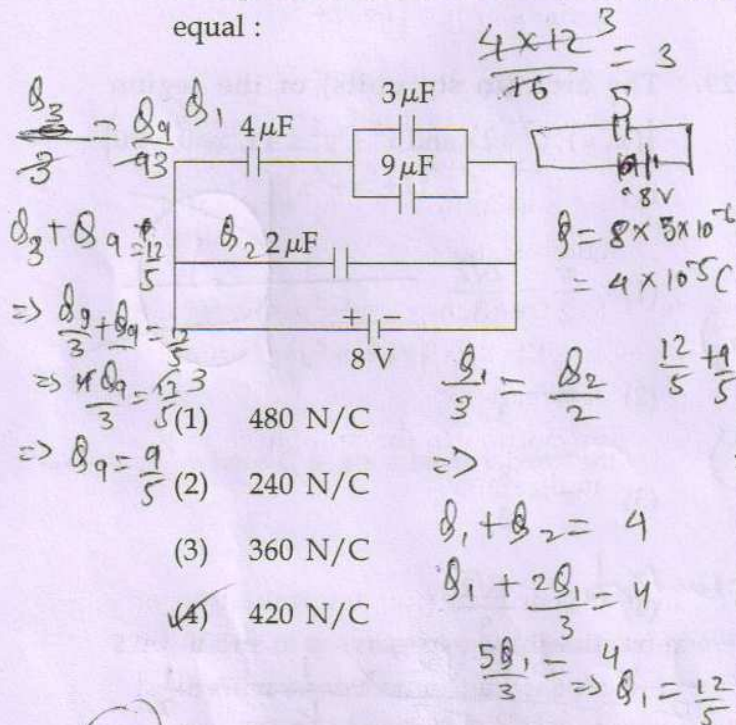 equal :
4 × 12 3
16
= 3
Q3
3
= Q9
93
Q1
4 μF
3 μF
9 μF
5
8V
Q3 + Q9 = 12
5
Q2 2 μF
Q = 8 × 5 × 10-6
= 4 × 10-5 C
=> Q9
3
+ Q9 = 12
5
+ −
8 V
=> 4Q9
3
= 12 3
5
Q1
3
= Q2
2
12
5
+ 9
5
=> Q9 = 9
5
=>
(1) 480 N/C
(2) 240 N/C
(3) 360 N/C
(4) 420 N/C
Q1 + Q2 = 4
Q1 + 2Q1
3
= 4
5Q1
3
= 4
=> Q1 = 12
5